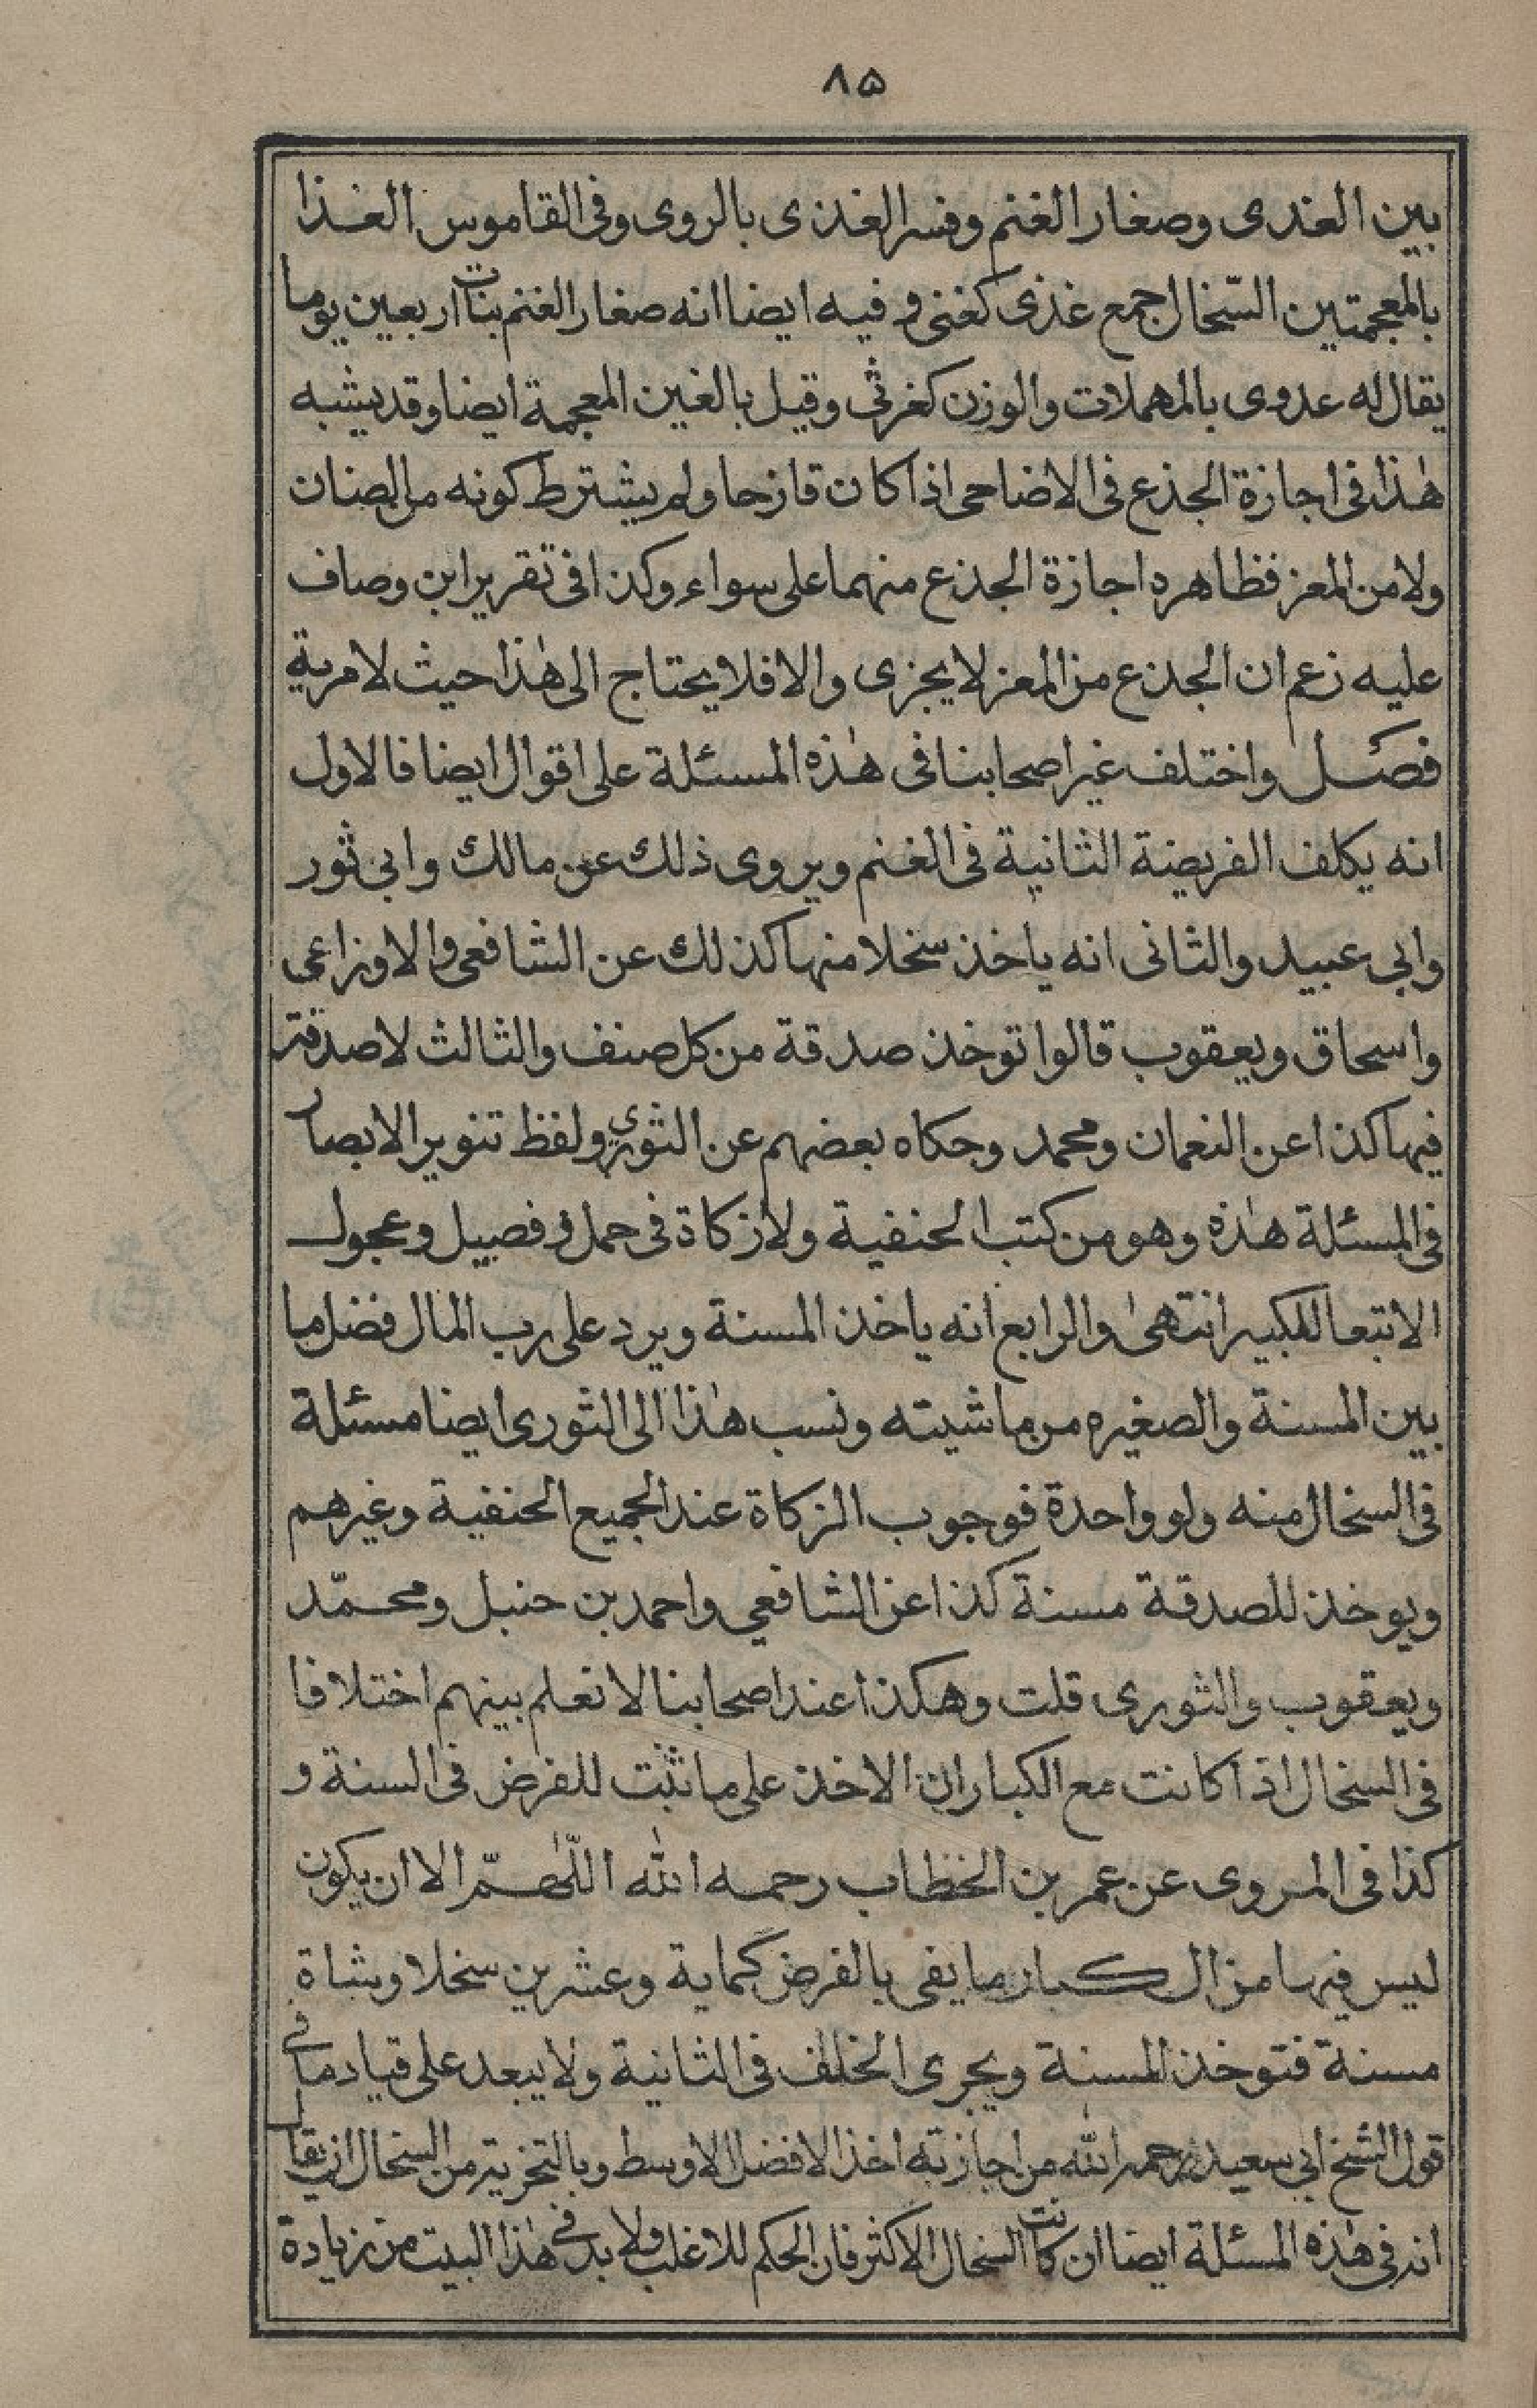 ٨٥
بين الغدى وصغار الغنم وفسر الغذى بالروى وفى القاموس الغذا
بالمعجمتين السّخال جمع غذى كغنى وفيه ايضا انه صغار الغنم بنات اربعين يوما
يقال له عدوى بالمهملات والوزن كغرثى وقيل بالغين المعجمة ايضا وقد يشبه
هٰذا فى اجازة الجذع فى الاضاحى اذا كان قازحا ولم يشترط كونه من الضان
ولا من المعز فظاهره اجازة الجذع منهما على سواء وكذا فى تقرير ابن وصاف
عليه زعم ان الجذع من المعز لا يجزى والا فلا يحتاج الى هٰذا حيث لا مرية
فصل واختلف غير اصحابنا فى هٰذه المسئلة على اقوال ايضا فالاول
انه يكلف الفريضة الثانية فى الغنم ويروى ذلك عن مالك وابى ثور
وابى عبيد والثانى انه ياخذ سخلا منها كذلك عن الشافعى والاوزاعى
واسحاق ويعقوب قالوا توخذ صدقة من كل صنف والثالث لا صدقة
فيها كذا عن النعمان ومحمد وحكاه بعضهم عن الثورى ولفظ تنوير الابصار
فى المسئلة هٰذه وهو من كتب الحنفية ولا زكاة فى حمل وفصيل وعجول
الا تبعا لكبير انتهىٰ والرابع انه ياخذ المسنة ويرد على رب المال فضل ما
بين المسنة والصغيره من ماشيته ونسب هٰذا الى الثورى ايضا مسئلة
فى السخال منه ولو واحدة فوجوب الزكاة عند الجميع الحنفية وغيرهم
ويوخذ للصدقة مسنة كذا عن الشافعي واحمد بن حنبل ومحمّد
ويعقوب والثورى قلت وهكذا عند اصحابنا لا نعلم بينهم اختلافا
فى السخال اذا كانت مع الكبار ان الاخذ على ما ثبت للفرض فى السنة و
كذا فى المروى عن عمر بن الخطاب رحمه الله اللّهمّ الا ان يكون
ليس فيها من الكبار ما يفى بالفرض كماية وعشرين سخلا وشاة
مسنة فتوخذ المسنة ويجرى الخلف فى الثانية ولا يبعد على قياد ما فى
قول الشيخ ابي سعيد رحمه الله من اجازته اخذ الافضل الاوسط وبالتجزية من السخال ان يقال
انه فى هٰذه المسئلة ايضا ان كانت السخال الاكثر فان الحكم للاغلب ولا بد فى هٰذا البيت من زيادة